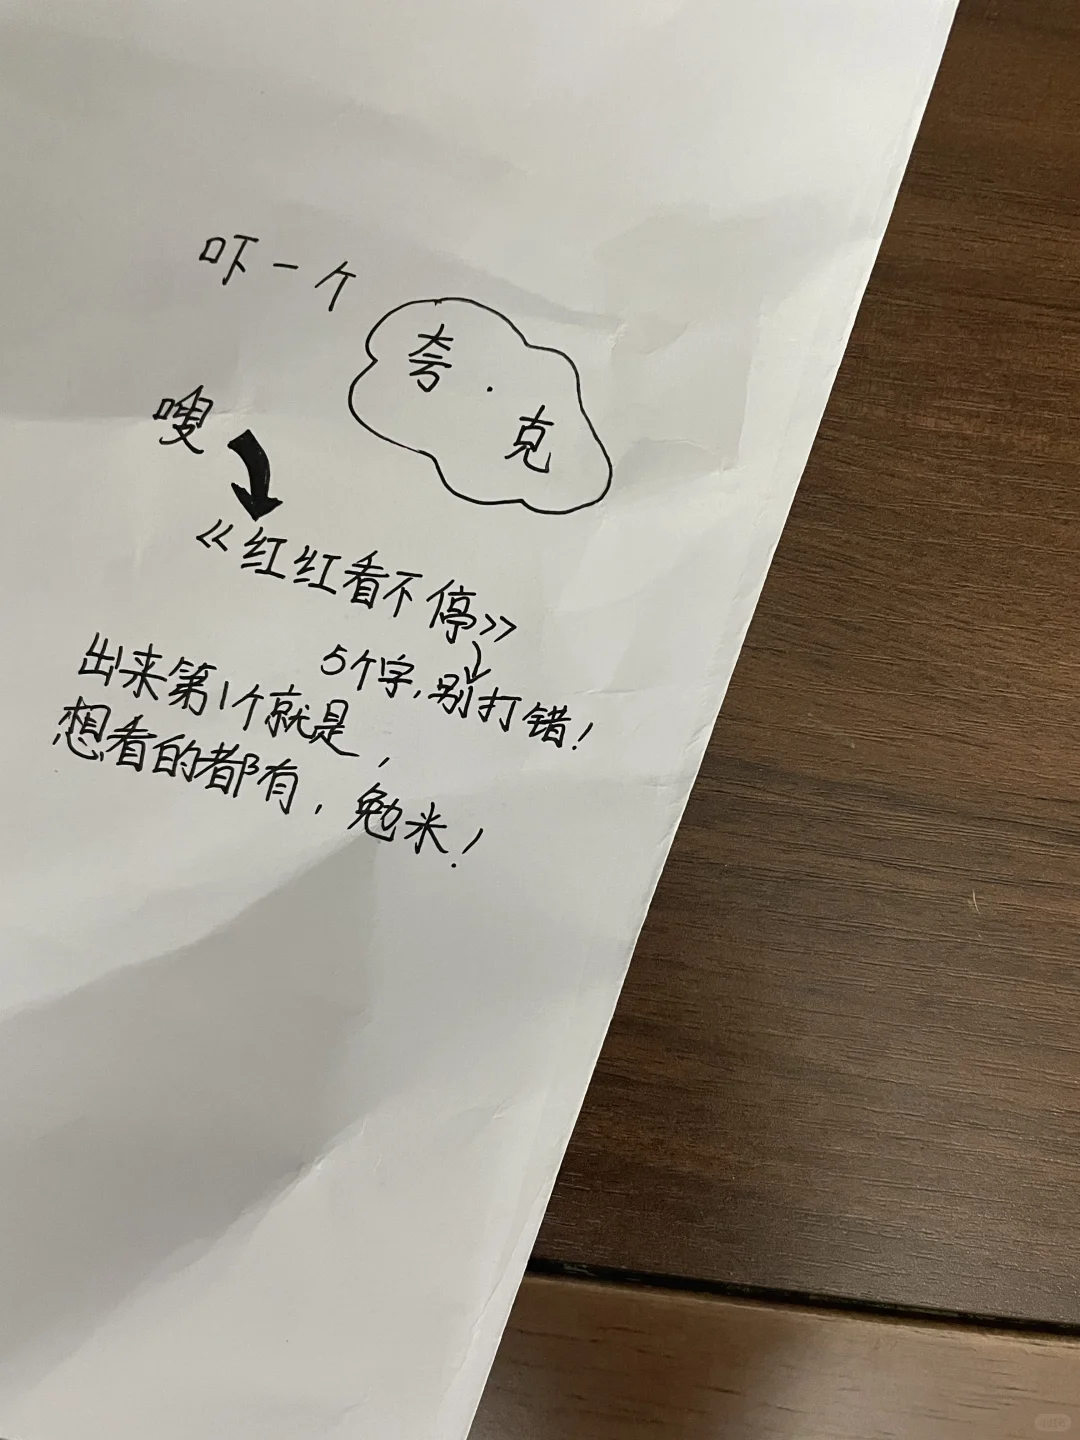 吓一个
夸·克
嗖
《红红看不停》
5个字,别打错!
出来第1个就是,
想看的都有,勉米!